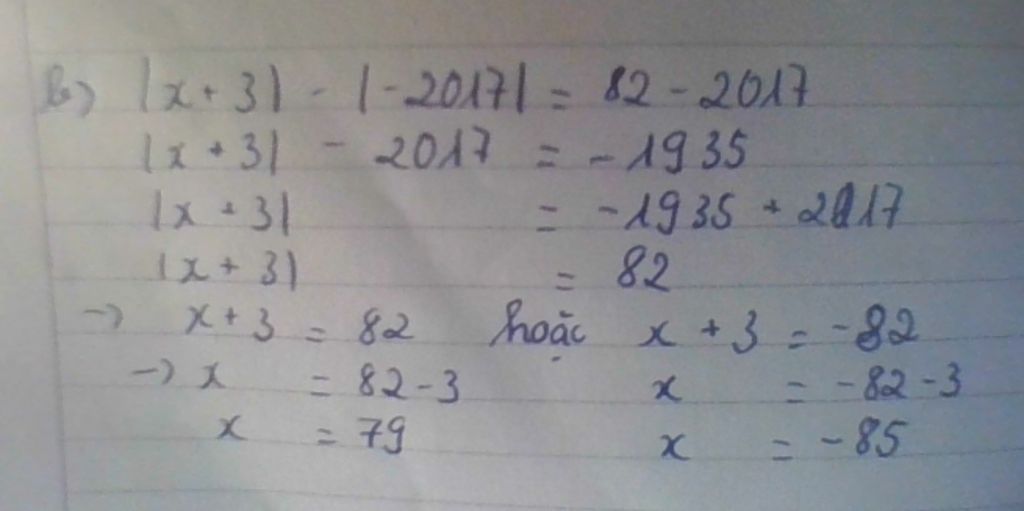 b) |x + 3| - |-2017| = 82 - 2017
|x + 3| - 2017 = -1935
|x + 3| = -1935 + 2017
|x + 3| = 82
→ x + 3 = 82 hoặc x + 3 = -82
→ x = 82 - 3 x = -82 - 3
x = 79 x = -85